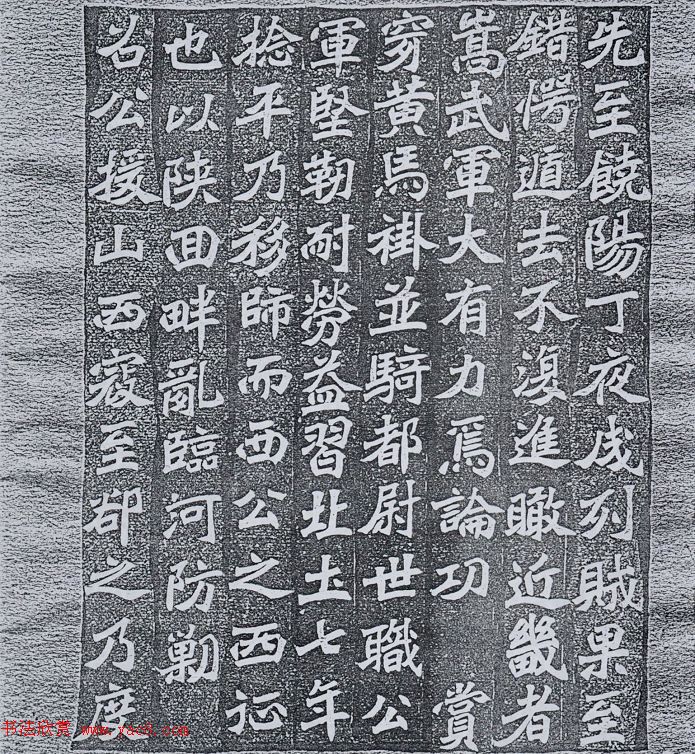 先至饒陽丁夜成列賊果至
錯愕遁去不復進瞰近畿者
嵩武軍大有力焉論功賞
穿黃馬褂並騎都尉世職公
軍堅勒耐勞益習北土七年
捻平乃移師而西公之西征
也以陝回畔亂臨河防剿
召公援山西寇至卻之乃度
书法欣赏 www.yac8.com